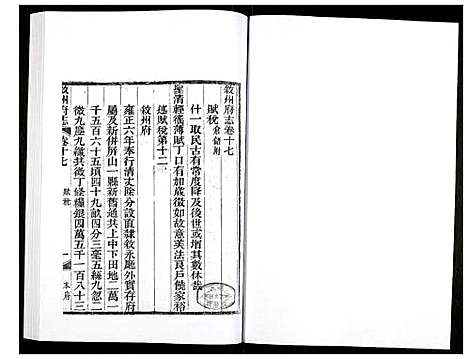 敘州府志卷十七
賦稅 倉儲附
什一取民古有常度降及後世或增其數休哉
聖清輕徭薄賦丁口有加歲徵如故意美法良戶慶家裕
述賦稅第十二
敘州府
雍正六年奉行清丈除分設直隸敘永廳外實存府
屬及新併屏山一縣新舊通共上中下田地二萬一
千五百六十五頃四十九畝四分三毫五絲九忽二
微九塵九纖共徵丁條糧銀四萬五千一百八十三
敘州府志 卷十七 賦稅 一 本府